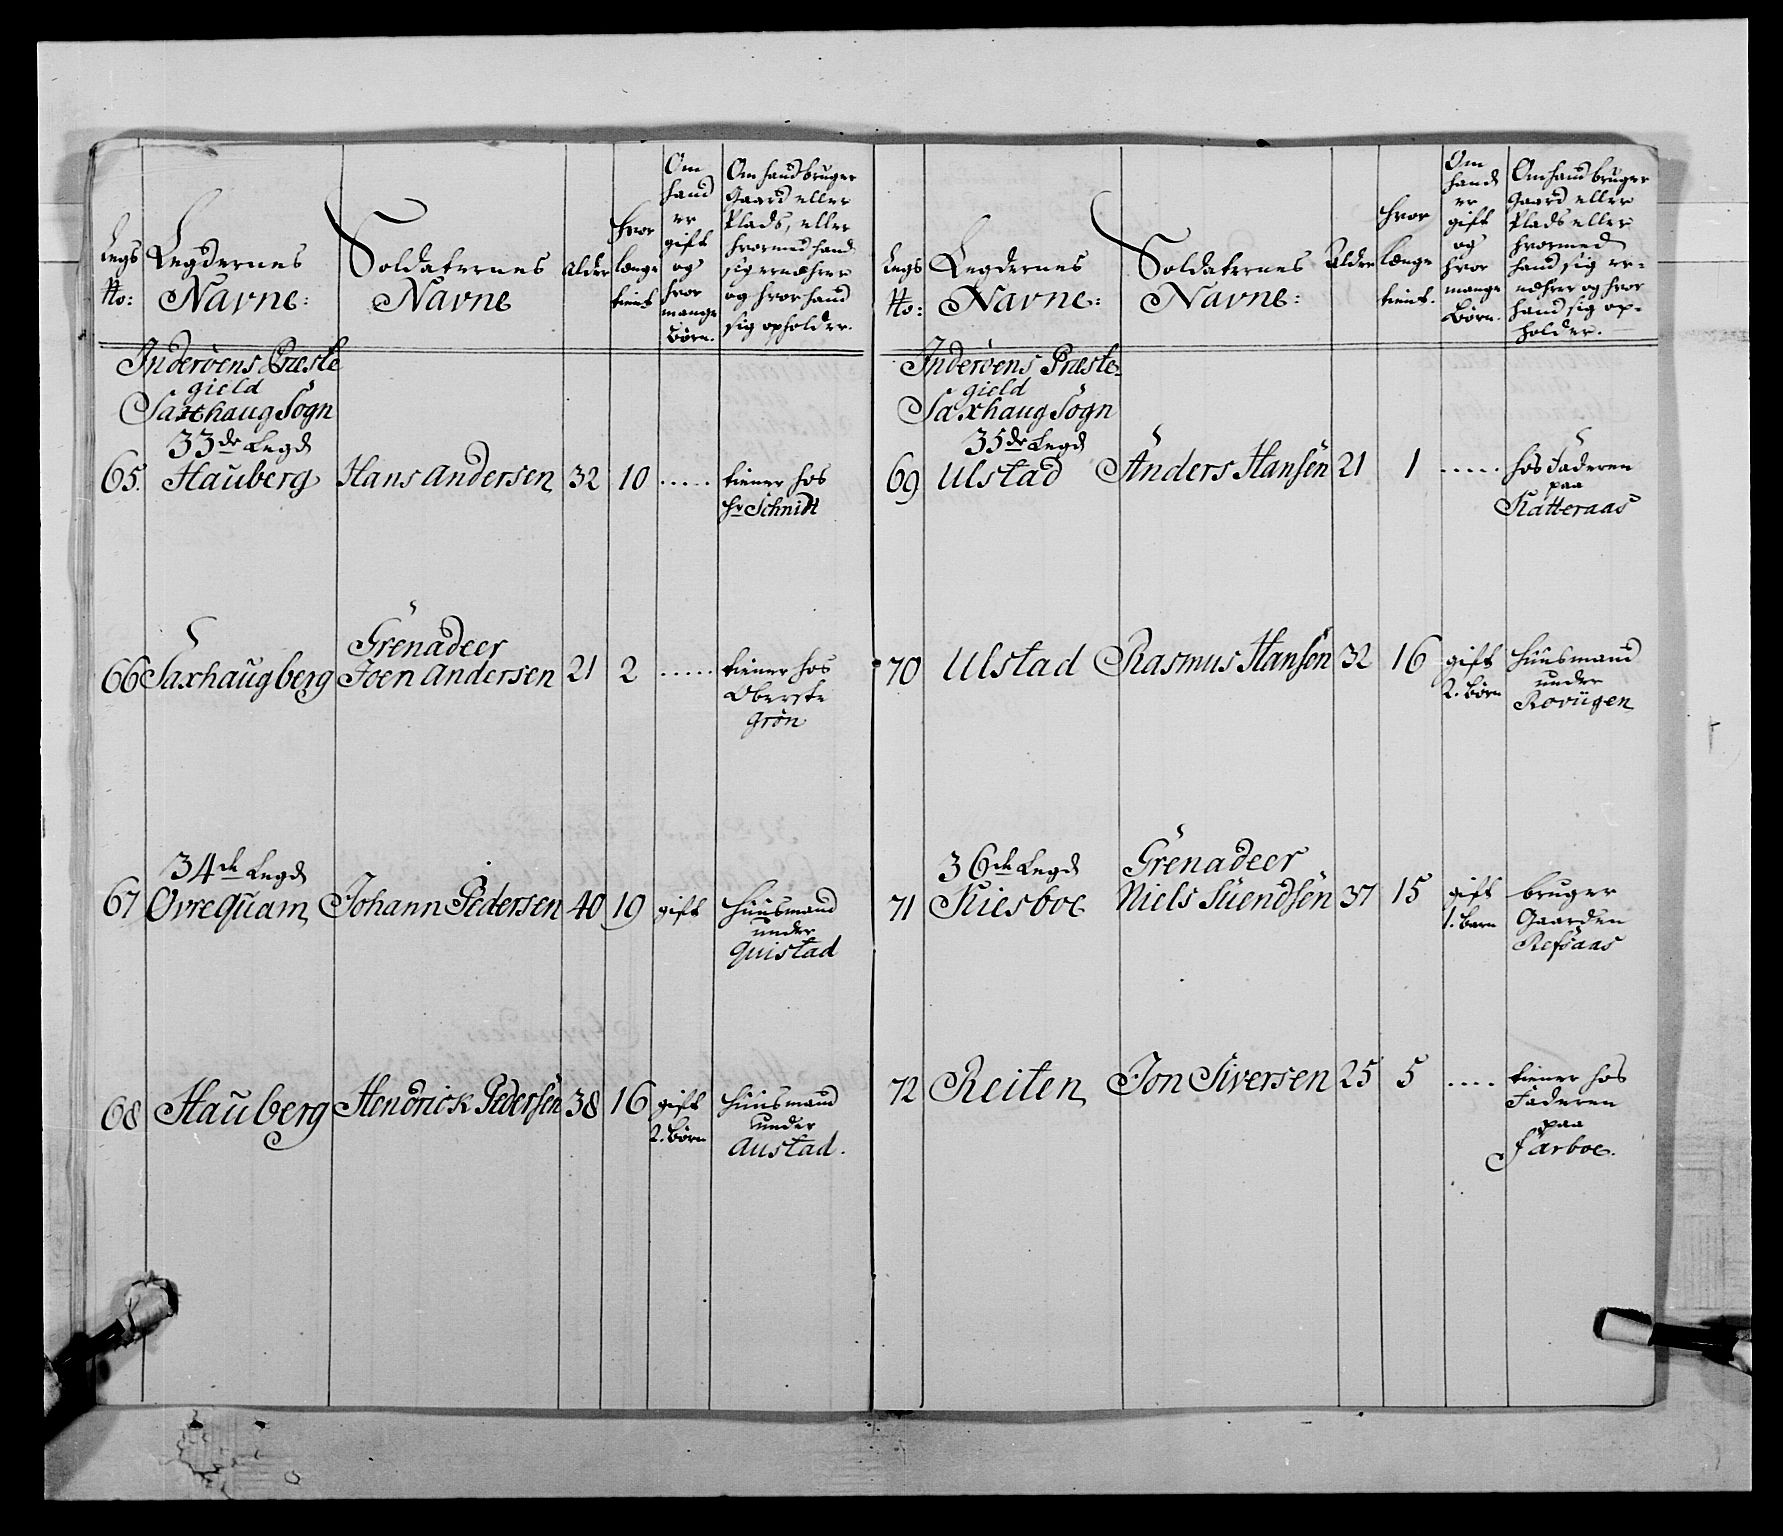 Legs
No:
Legdernes
Navne:
Soldaternes
Navne
Alder
hvor
længe
tient
Om
hand
er
gift
og
hvor
mange
Børn.
Om hand bruger
Gaard eller
Plads, eller
hvormed hand
sig ernæhrer
og hvor hand
sig opholder.
Inderöens Præste
gield
Saxhaug Sogn
33de Legd
65. Hauberg Hans Andersen 32 10 ..... tiener hos
hr Schmidt
Grenadeer
66 Saxhaugberg Joen Andersen 21 2 ..... tiener hos
Oberste
Grön
34de Legd
67 Ovre Quam Johann Pedersen 40 19 gift Huusmand
under
Quistad
68 Hauberg Hendrick Pedersen 38 16 gift Huusmand
2. Börn under
Austad.
Legs
No:
Legdernes
Navne:
Soldaternes
Navne:
Alder
hvor
længe
tient.
Om
hand
er
gift
og
hvor
mange
Børn.
Om hand bruger
Gaard eller
Plads eller
hvormed
hand sig er-
næhrer og hvor
hand sig op-
holder.
Inderöens Præste-
gield
Saxhaug Sogn
35de Legd
69 Ulstad Anders Hansen 21 1 ..... hos Faderen
paa
Katteraas
70 Ulstad Rasmus Hansen 32 16 gift Huusmand
2. Börn under
Rovügen
36de Legd Grenadeer
71 Kiesboe Niels Suendsen 37 15 gift bruger
1. barn Gaarden
Refsaas
72 Reiten Jon Siversen 25 5 .... tiener hos
Faderen
paa
Farboe.